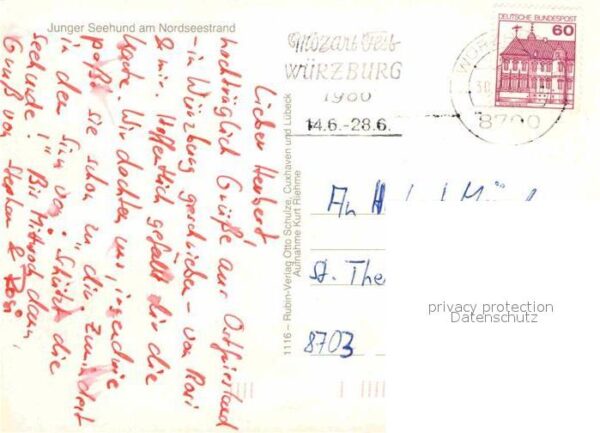 Junger Seehund am Nordseestrand
Lieber Herbert,
nachträglich Grüße aus Ostfriesland
- in Würzburg geschrieben - von Rosi
& mir. Hoffentlich gefällt dir die
Karte. Wir dachten uns, irgendwie
paßt sie schon in die Zumindest
in den Sinn von: Schützt die
Seehunde!" Bis Mittwoch dann,
Gruß von Stephan & Rosi
1116 – Rubin-Verlag Otto Schulze, Cuxhaven und Lübeck
Aufnahme Kurt Riehme
Mozart Fest
WÜRZBURG
1980
14.6.-28.6.
8700
DEUTSCHE BUNDESPOST
60
An
St. The
8703
privacy protection
Datenschutz